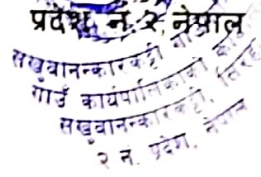 प्रदेश नं. २ नेपाल
सखुवानन्कारकट्टी गा
गाउँ कार्यपालिकाको
सखुवानन्कारकट्टी, सिरहा
२ नं. प्रदेश, नेपाल